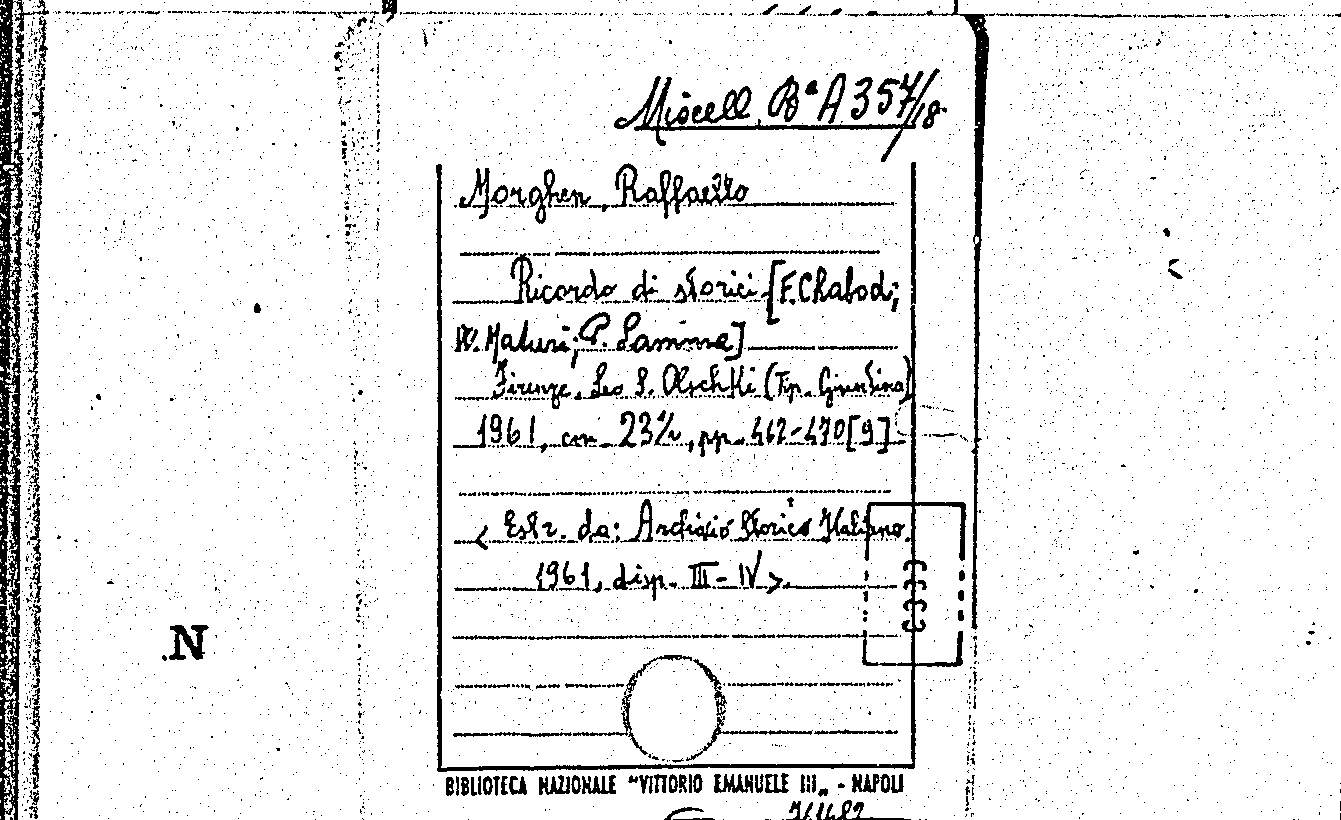 Miscell. Bª A 357/18
Morghen, Raffaello
Ricordo di storici [F. Chabod;
W. Maturi; P. Lamma]
Firenze, Leo S. Olschki (Tip. Giuntina)
1961, cm. 23½, pp. 462-470 [9]
< Estr. da: Archivio Storico Italiano.
1961, disp. III-IV >.
N
BIBLIOTECA NAZIONALE "VITTORIO EMANUELE III„ - NAPOLI